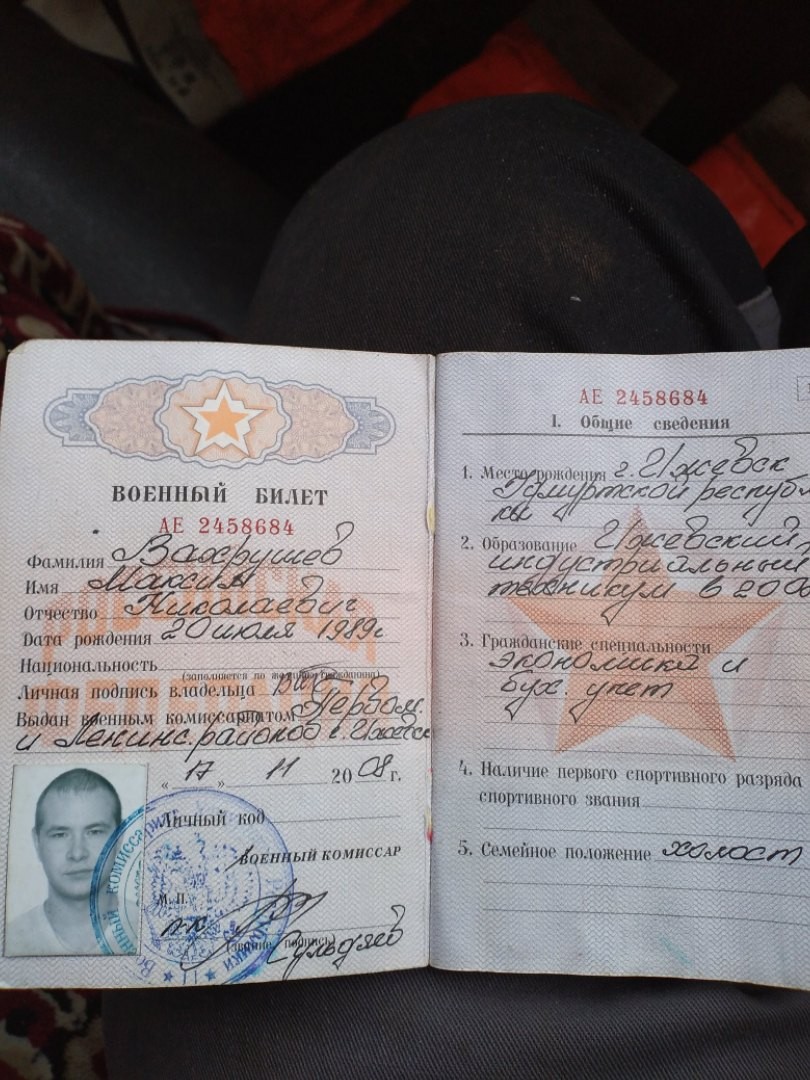 ВОЕННЫЙ БИЛЕТ
АЕ 2458684
Фамилия Вахрушев
Имя Максим
Отчество Николаевич
Дата рождения 20 июля 1989г
Национальность
(заполняется по желанию гражданина)
Личная подпись владельца
Выдан военным комиссариатом Первом.
и Ленинс. районов г. Ижевск
« 17 » 11 2008 г.
Личный код
ВОЕННЫЙ КОМИССАР
М.П.
п-к
(звание, подпись)
АЕ 2458684
I. Общие сведения
1. Место рождения г. Ижевск
Удмуртской республ
ки
2. Образование Ижевский
индустриальный
техникум в 200
3. Гражданские специальности
экономика и
бух. учет
4. Наличие первого спортивного разряда
спортивного звания
5. Семейное положение холост